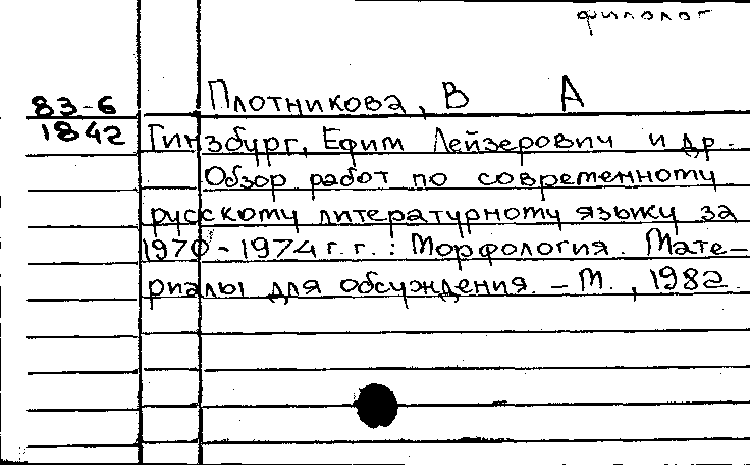 филолог
83-6 Плотникова, В А
1842 Гинзбург, Ефим Лейзерович и др.
Обзор работ по современному
русскому литературному языку за
1970-1974 г.г.: Морфология. Мате-
риалы для обсуждения. - М., 1982